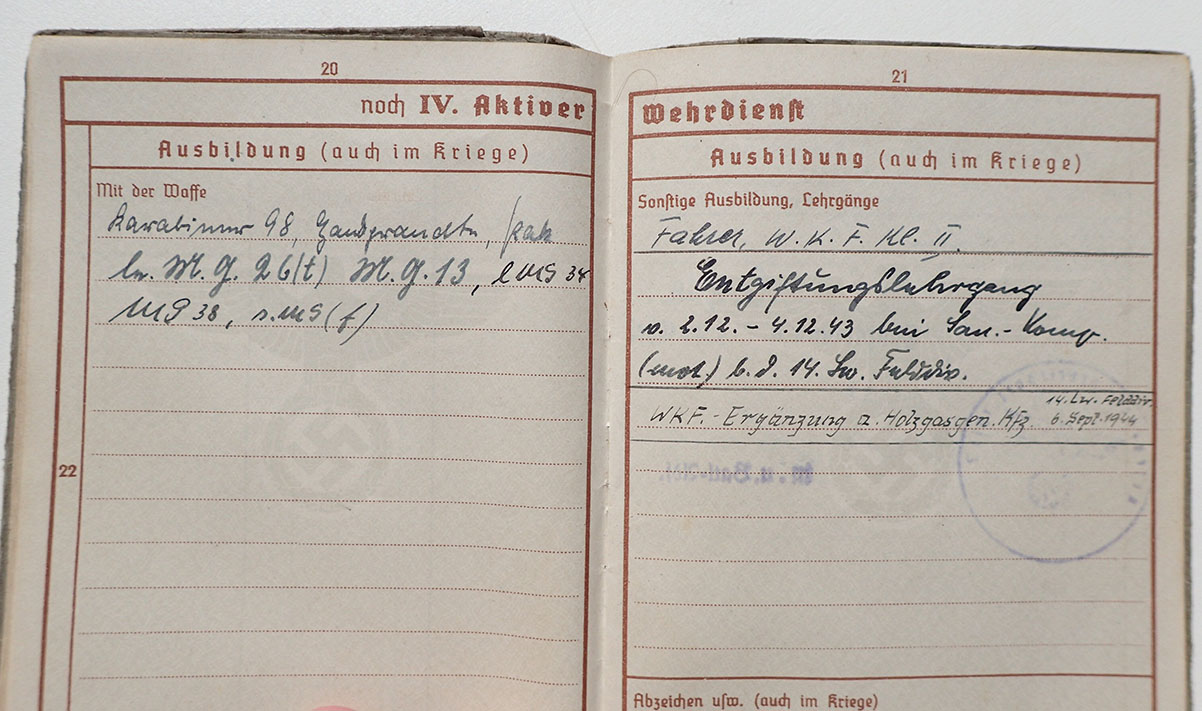 20
noch IV. Aktiver
Ausbildung (auch im Kriege)
Mit der Waffe
Karabiner 98, Handgranate,
le. M. G. 26(t) M. G. 13, l MG 34
MG 38, s. MG (f)
22
21
Wehrdienst
Ausbildung (auch im Kriege)
Sonstige Ausbildung, Lehrgänge
Fahrer, W. K. F. Kl. II.
Entgiftungslehrgang
v. 2.12. - 4.12.43 bei San.- Komp.
(mot.) b. d. 14. Lw. Felddiv.
14. Lw. Felddiv.
WKF.- Ergänzung a. Holzgasgen. Kfz. 6. Sept. 1944
Abzeichen usw. (auch im Kriege)